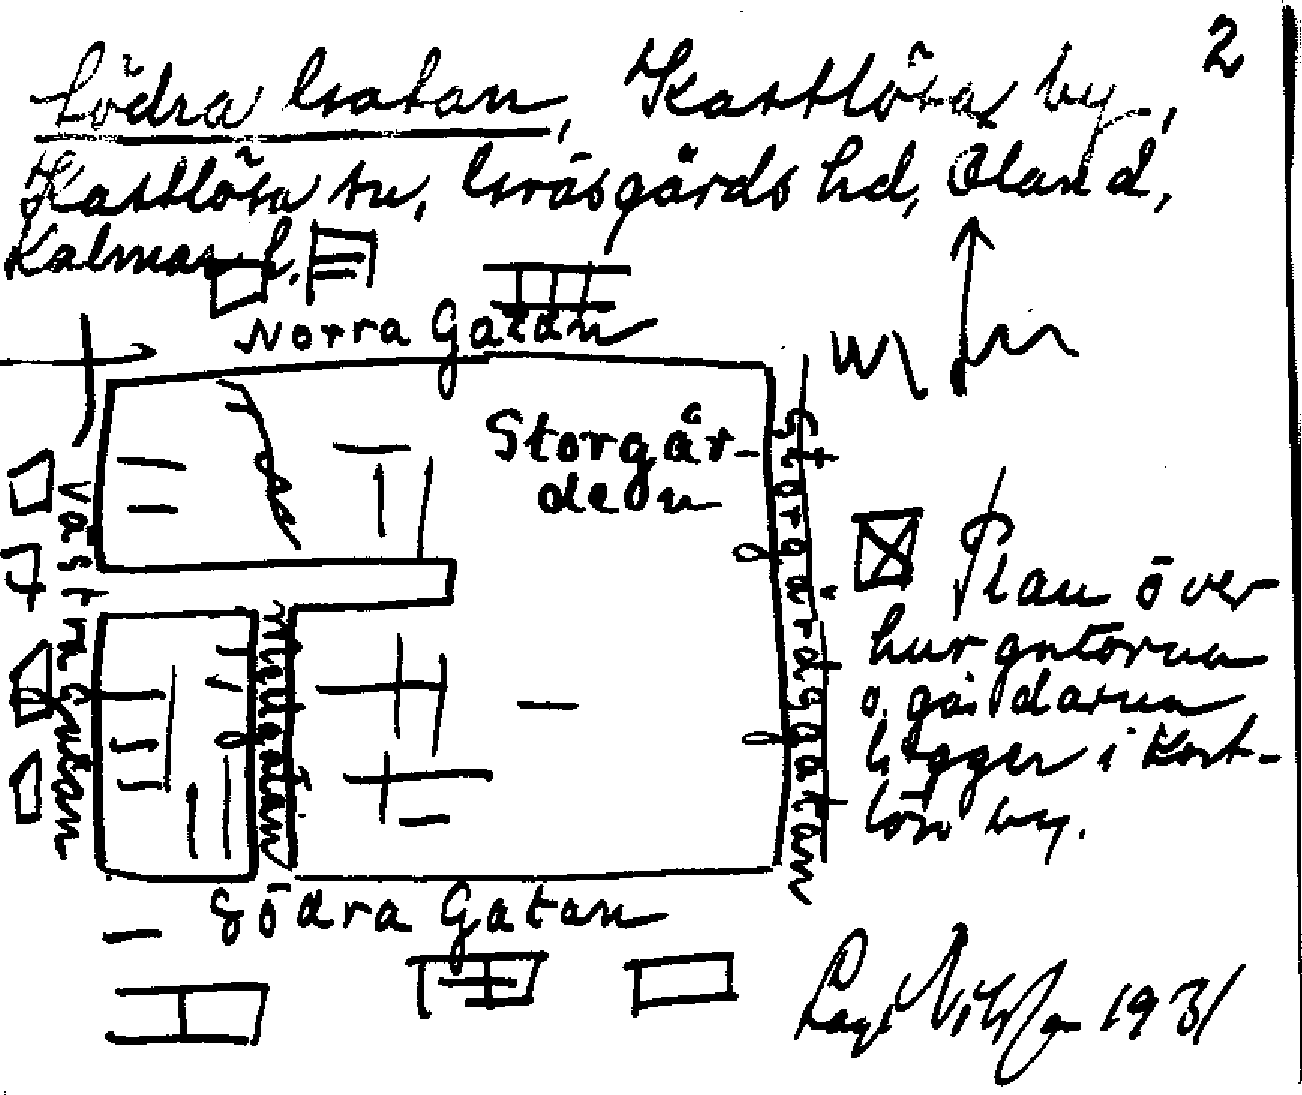 2
Södra Gatan, Kastlösa by,
Kastlösa sn, Gräsgårds hd, Öland,
Kalmar l.
Norra Gatan
Storgår-
den
Västra Gatan
Storgårdsgatan
Södra Gatan
Plan över
hur gatorna
o. gårdarna
ligger i Kast-
lösa by.
1931